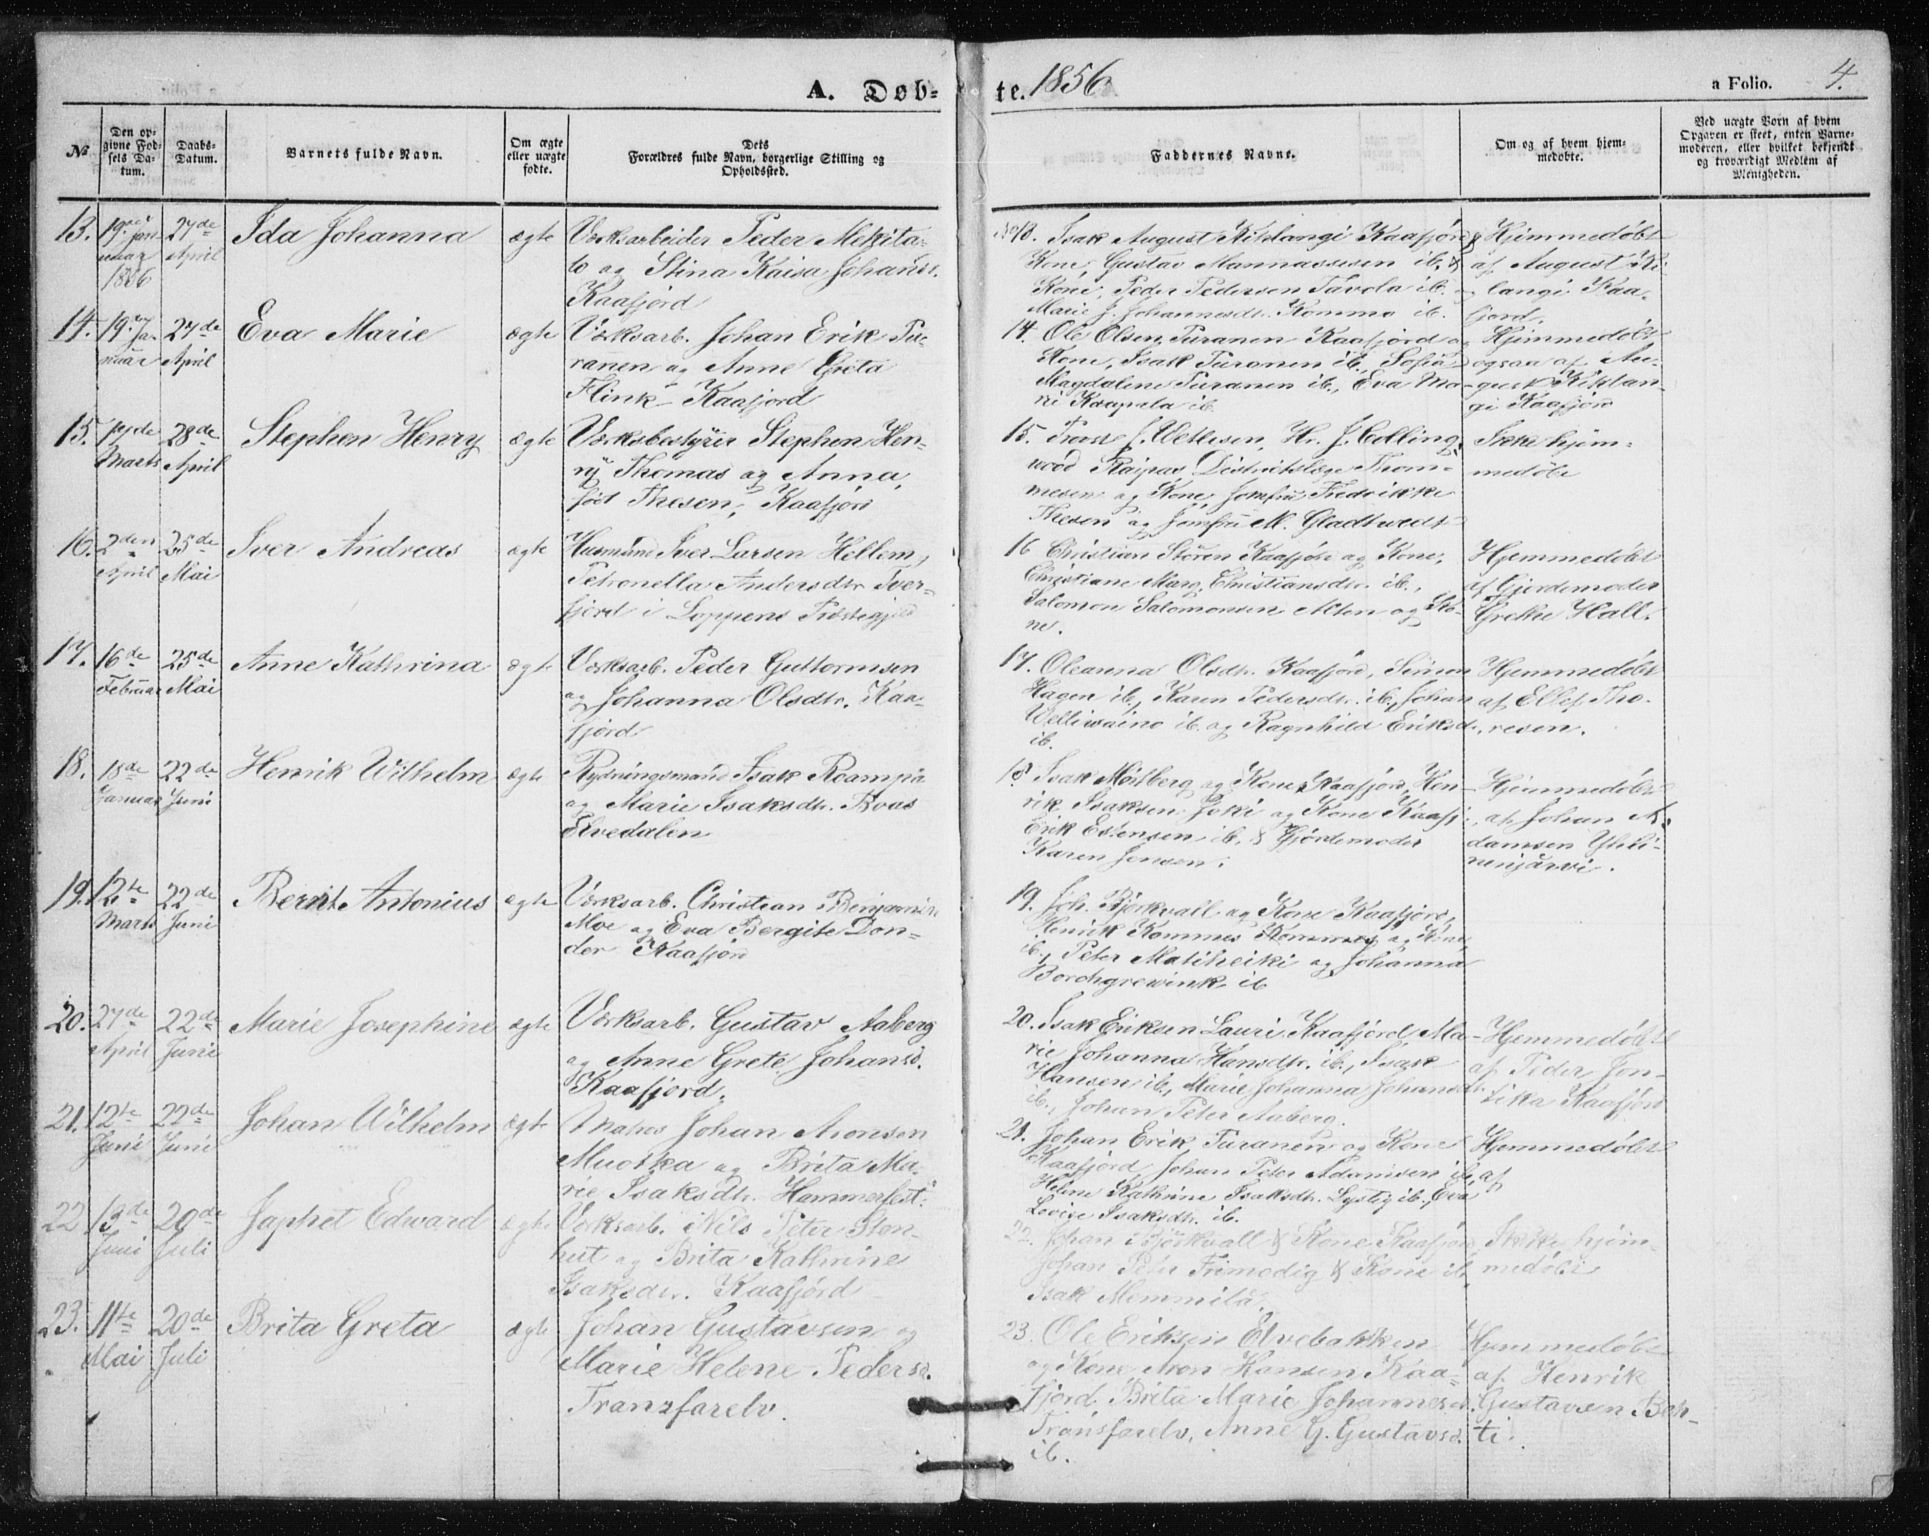 A. Døb-
te. 1856
a Folio. 4.
№
Den op-
givne Fød-
sels Da-
tum.
Daabs-
Datum.
Barnets fulde Navn.
Om ægte
eller uægte
fødte.
Dets
Forældres fulde Navn, borgerlige Stilling og
Opholdssted.
Faddernes Navne.
Om og af hvem hjem-
medøbte.
Ved uægte Børn af hvem
Opgaven er skeet, enten Barne-
moderen, eller hvilket bekjendt
og troværdigt Medlem af
Menigheden.
13. 19de Jan
uar
1856
27de
April
Ida Johanna
ægte
Værksarbeider Peder Mekita-
lo og Stina Kaisa Johansd.
Kaafjord
Isak August Kihlangi Kaafjord &
Kone, Gustav Mannassesen ib. &
Kone, Peder Pedersen Tavola ib.
Marie J. Johannesdtr. Kommo ib.
Hjemmedøbt
af August Ki-
langi Kaa-
fjord.
14. 19de Ja-
nuar
27de
April
Eva Marie
ægte
Værksarb. Johan Erik Tu-
ranen og Anne Greta
Flink Kaafjord
14. Ole Olsen Turanen Kaafjord og
Kone, Isak Turanen ib., Sofia
Magdalene Turanen ib., Eva Ma-
ri ib.
Hjemmedøbt
ogsaa af Au-
gust Kihlan-
gi Kaafjord
15.
Marts
28de
April
Stephen Henry
ægte
Værksbestyrer Stephen Hen-
ry Thomas og Anna,
født Thesen, Kaafjord
15. Provst Hr. J. Colling-
wood Raipas, Districtslæge Thom-
mesen og Kone, Jomfru Fredrikke
Thesen og Jomfru M. Gladtvedt
Ikke hjem-
medøbt
16. 2den
April
25de
Mai
Iver Andreas
ægte
Husmand Iver Larsen Hellem,
Petronella Andersdtr. Tver-
fjord i Loppens Præstegjeld
16 Christian Støren Kaafjord og Kone,
Christiane Marg. Christiansdtr. ib.,
Salomon Salomonsen Alten og Ko-
ne.
Hjemmedøbt
af Gjordemoder
Grethe Hall.
17. 16de
Februar
25de
Mai
Anne Kathrina
ægte
Værksarb. Peder Guttormsen
og Johanna Olsdtr. Kaa-
fjord
17. Oleanna Olsdtr. Kaafjord, Simon
Hagen ib., Karen Pedersdtr. ib., Johan
Velliwaino ib. og Ragnhild Eriksd.
ib.
Hjemmedøbt
af Ellef Tho-
resen.
18. 18de
Januar
22de
Juni
Henrik Wilhelm
ægte
Rydningsmand Isak Roampa
og Marie Isaksdtr. Boas
Elvedalen
18 Isak Mortberg og Kone Kaafjord, Hen-
rik Isaksen Joki og Kone Kaafj.
Erik Estensen ib. & Gjordemoder
Karen Jensen.
Hjemmedøbt
af Johan A-
damsen Ylili-
nenjärvi.
19. 12te
Marts
22de
Juni
Bernt Antonius
ægte
Værksarb. Christian Benjamin
Moe og Eva Bergite Don-
der Kaafjord
19. Joh. Björkvall og Kone Kaafjord,
Henrik Kommes og Kone
ib., Peter Matiheiki og Johanna
Borchgrewink ib
20. 27de
April
22de
Juni
Marie Josephine
ægte
Værksarb. Gustav Aaberg
og Anne Grete Johansd.
Kaafjord.
20. Isak Eriksen Lauri Kaafjord, Ma-
rie Johanna Hansdtr. ib., Isak
Hansen ib., Marie Johanna Johansdtr.
ib., Johan Peter Aaberg.
Hjemmedøbt
af Peder Jon-
tika Kaafjord
21. 12te
Juni
22de
Juni
Johan Wilhelm
ægte
Matros Johan Aronsen
Muotka og Brita Ma-
rie Isaksdtr. Hammerfest.
21. Johan Erik Turanen og Kone
Kaafjord, Johan Peter Adamsen ib.,
Helene Kathrine Isaksdtr. Lystig ib., Eva
Lovise Isaksdtr. ib.
Hjemmedøbt
af
22 13de
Juni
20de
Juli
Japhet Edward
ægte
Værksarb. Nils Peter Sten-
hut og Brita Kathrine
Isaksdtr. Kaafjord
22. Johan Björkvall & Kone Kaafjord
Johan Peter Frimodig & Kone ib.
Isak Memmila.
Ikke hjem-
medøbt
23. 11te
Mai
20de
Juli
Brita Greta
ægte
Johan Gustavsen og
Marie Helene Pedersd.
Tranzfarelv.
23. Ole Eriksen Elvebakken
og Kone, Aron Hansen Kaa-
fjord, Brita Marie Johannesd.
Transfarelv, Anne G. Gustavsd.
ib.
Hjemmedøbt
af Henrik
Gustavsen Beh-
ti.